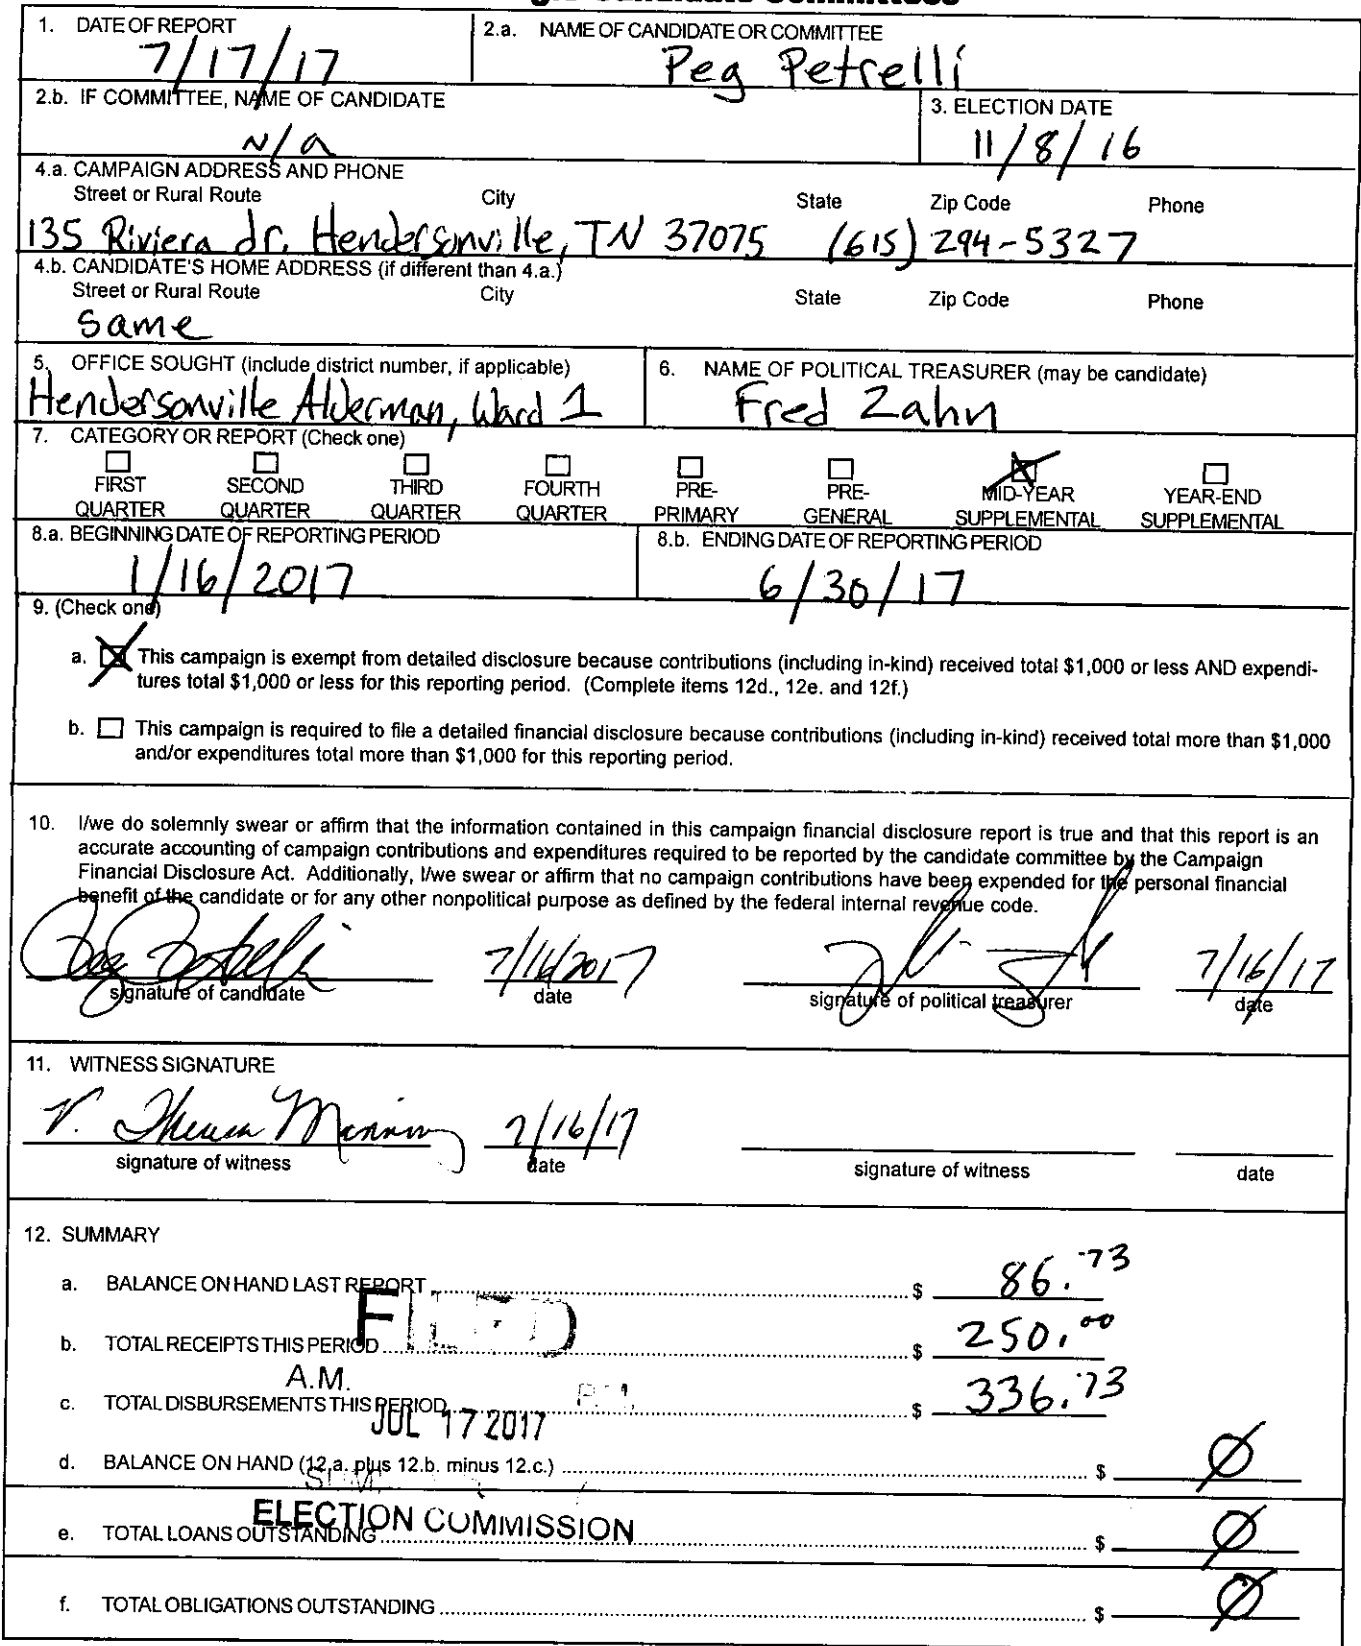 1. DATE OF REPORT
7/17/17
2.a. NAME OF CANDIDATE OR COMMITTEE
Peg Petrelli
2.b. IF COMMITTEE, NAME OF CANDIDATE
N/a
3. ELECTION DATE
11/8/16
4.a. CAMPAIGN ADDRESS AND PHONE
Street or Rural Route City State Zip Code Phone
135 Riviera dr. Hendersonville, TN 37075 (615) 294-5327
4.b. CANDIDATE'S HOME ADDRESS (if different than 4.a.)
Street or Rural Route City State Zip Code Phone
Same
5. OFFICE SOUGHT (include district number, if applicable)
Hendersonville Alderman, Ward 1
6. NAME OF POLITICAL TREASURER (may be candidate)
Fred Zahn
7. CATEGORY OR REPORT (Check one)
FIRST QUARTER
SECOND QUARTER
THIRD QUARTER
FOURTH QUARTER
PRE-PRIMARY
PRE-GENERAL
MID-YEAR SUPPLEMENTAL
YEAR-END SUPPLEMENTAL
8.a. BEGINNING DATE OF REPORTING PERIOD
1/16/2017
8.b. ENDING DATE OF REPORTING PERIOD
6/30/17
9. (Check one)
a. This campaign is exempt from detailed disclosure because contributions (including in-kind) received total $1,000 or less AND expendi-
tures total $1,000 or less for this reporting period. (Complete items 12d., 12e. and 12f.)
b. This campaign is required to file a detailed financial disclosure because contributions (including in-kind) received total more than $1,000
and/or expenditures total more than $1,000 for this reporting period.
10. I/we do solemnly swear or affirm that the information contained in this campaign financial disclosure report is true and that this report is an
accurate accounting of campaign contributions and expenditures required to be reported by the candidate committee by the Campaign
Financial Disclosure Act. Additionally, I/we swear or affirm that no campaign contributions have been expended for the personal financial
benefit of the candidate or for any other nonpolitical purpose as defined by the federal internal revenue code.
Peg Petrelli 7/16/2017 7/16/17
signature of candidate date signature of political treasurer date
11. WITNESS SIGNATURE
V. Theresa Manning 7/16/17
signature of witness date signature of witness date
12. SUMMARY
a. BALANCE ON HAND LAST REPORT $ 86.73
FILED
b. TOTAL RECEIPTS THIS PERIOD $ 250.00
A.M. P.M.
c. TOTAL DISBURSEMENTS THIS PERIOD $ 336.73
JUL 17 2017
d. BALANCE ON HAND (12.a. plus 12.b. minus 12.c.) $ Ø
ELECTION COMMISSION
e. TOTAL LOANS OUTSTANDING $ Ø
f. TOTAL OBLIGATIONS OUTSTANDING $ Ø